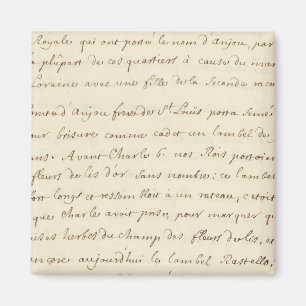 Royales qui ont porté le nom d'Anjou, par
la plûpart de ces quartiers à cause du mar
Loraine avec une fille de la Seconde race
comte d'Anjou frere de St. Louis porta Semé
pour brisure comme cadet un lambel de
ans. Avant Charle 6. nos Rois portoien
fleurs de lis d'or Sans nombre; ce lambel
fort long et ressembloit à un rateau, c'etoit
que Charle avoit prise, pour marquer q
uses herbes du champ des fleurs de lis, et
encore aujourd'hui le lambel Rastello,